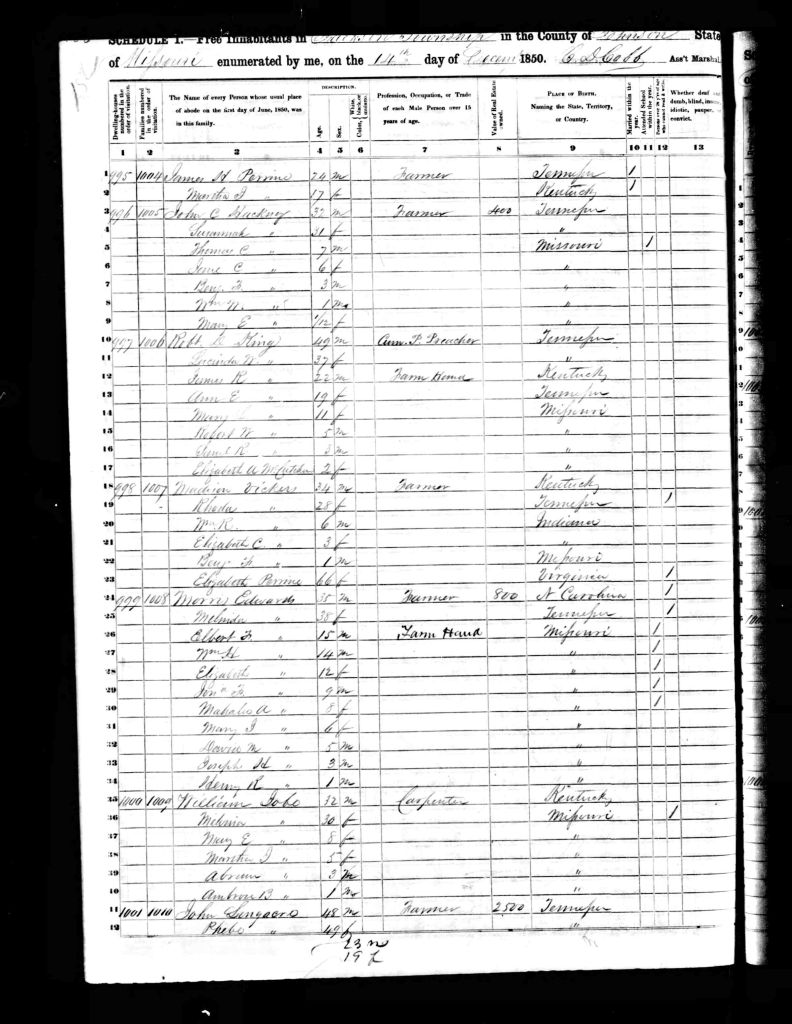 SCHEDULE I.—Free Inhabitants in Jackson Township in the County of Johnson State
of Missouri enumerated by me, on the 14th day of Decem 1850. C. D. Cobb Ass't Marshal
Dwelling-houses numbered in the order of visitation. Families numbered in the order of visitation. The Name of every Person whose usual place of abode on the first day of June, 1850, was in this family. DESCRIPTION. Age. Sex. Color, White, black, or mulatto. Profession, Occupation, or Trade of each Male Person over 15 years of age. Value of Real Estate owned. PLACE OF BIRTH. Naming the State, Territory, or Country. Married within the year. Attended School within the year. Whether deaf and dumb, blind, insane, idiotic, pauper, or convict.
1 2 3 4 5 6 7 8 9 10 11 12 13
1 995 1004 James H Perrine 24 m Farmer Tennessee 1
2 Martha J " 17 f Kentucky 1
3 996 1005 John C Hackney 32 m Farmer 400 Tennessee
4 Susannah " 31 f "
5 Thomas C " 7 m Missouri 1
6 Jane C " 6 f "
7 Benj F " 3 m "
8 Wm W " 1 m "
9 Mary E " 1/12 f "
10 997 1006 Robt D King 49 m Cum. P. Preacher Tennessee
11 Lucinda W " 37 f "
12 James R " 22 m Farm Hand Kentucky
13 Ann E " 19 f Tennessee
14 Mary " 11 f Missouri
15 Robert W " 5 m "
16 R " 3 m "
17 Elizabeth A McCutchen 2 f "
18 998 1007 Madison Vickers 34 m Farmer Kentucky
19 Rhoda " 28 f Tennessee 1
20 Wm R " 6 m Indiana
21 Elizabeth C " 3 f "
22 Benj F " 1 m Missouri
23 Elizabeth Perrine 66 f Virginia 1
24 999 1008 Morris Edwards 35 m Farmer 800 N Carolina 1
25 Melinda " 38 f Tennessee 1
26 Elbert F " 15 m Farm Hand Missouri 1
27 Wm H " 14 m " 1
28 Elizabeth " 12 f " 1
29 Jona F " 9 m " 1
30 Mahala A " 8 f " 1
31 Mary J " 6 f "
32 David M " 5 m "
33 Joseph H " 3 m "
34 Henry R " 1 m "
35 1000 1009 William Jobe 32 m Carpenter Kentucky
36 " 30 f Missouri 1
37 Mary E " 8 f "
38 Martha J " 5 f "
39 Abram " 3 m "
40 Ambrose B " 1 m "
41 1001 1010 John 48 m Farmer 2500 Tennessee
42 Phebe " 49 f "
23 m
19 f